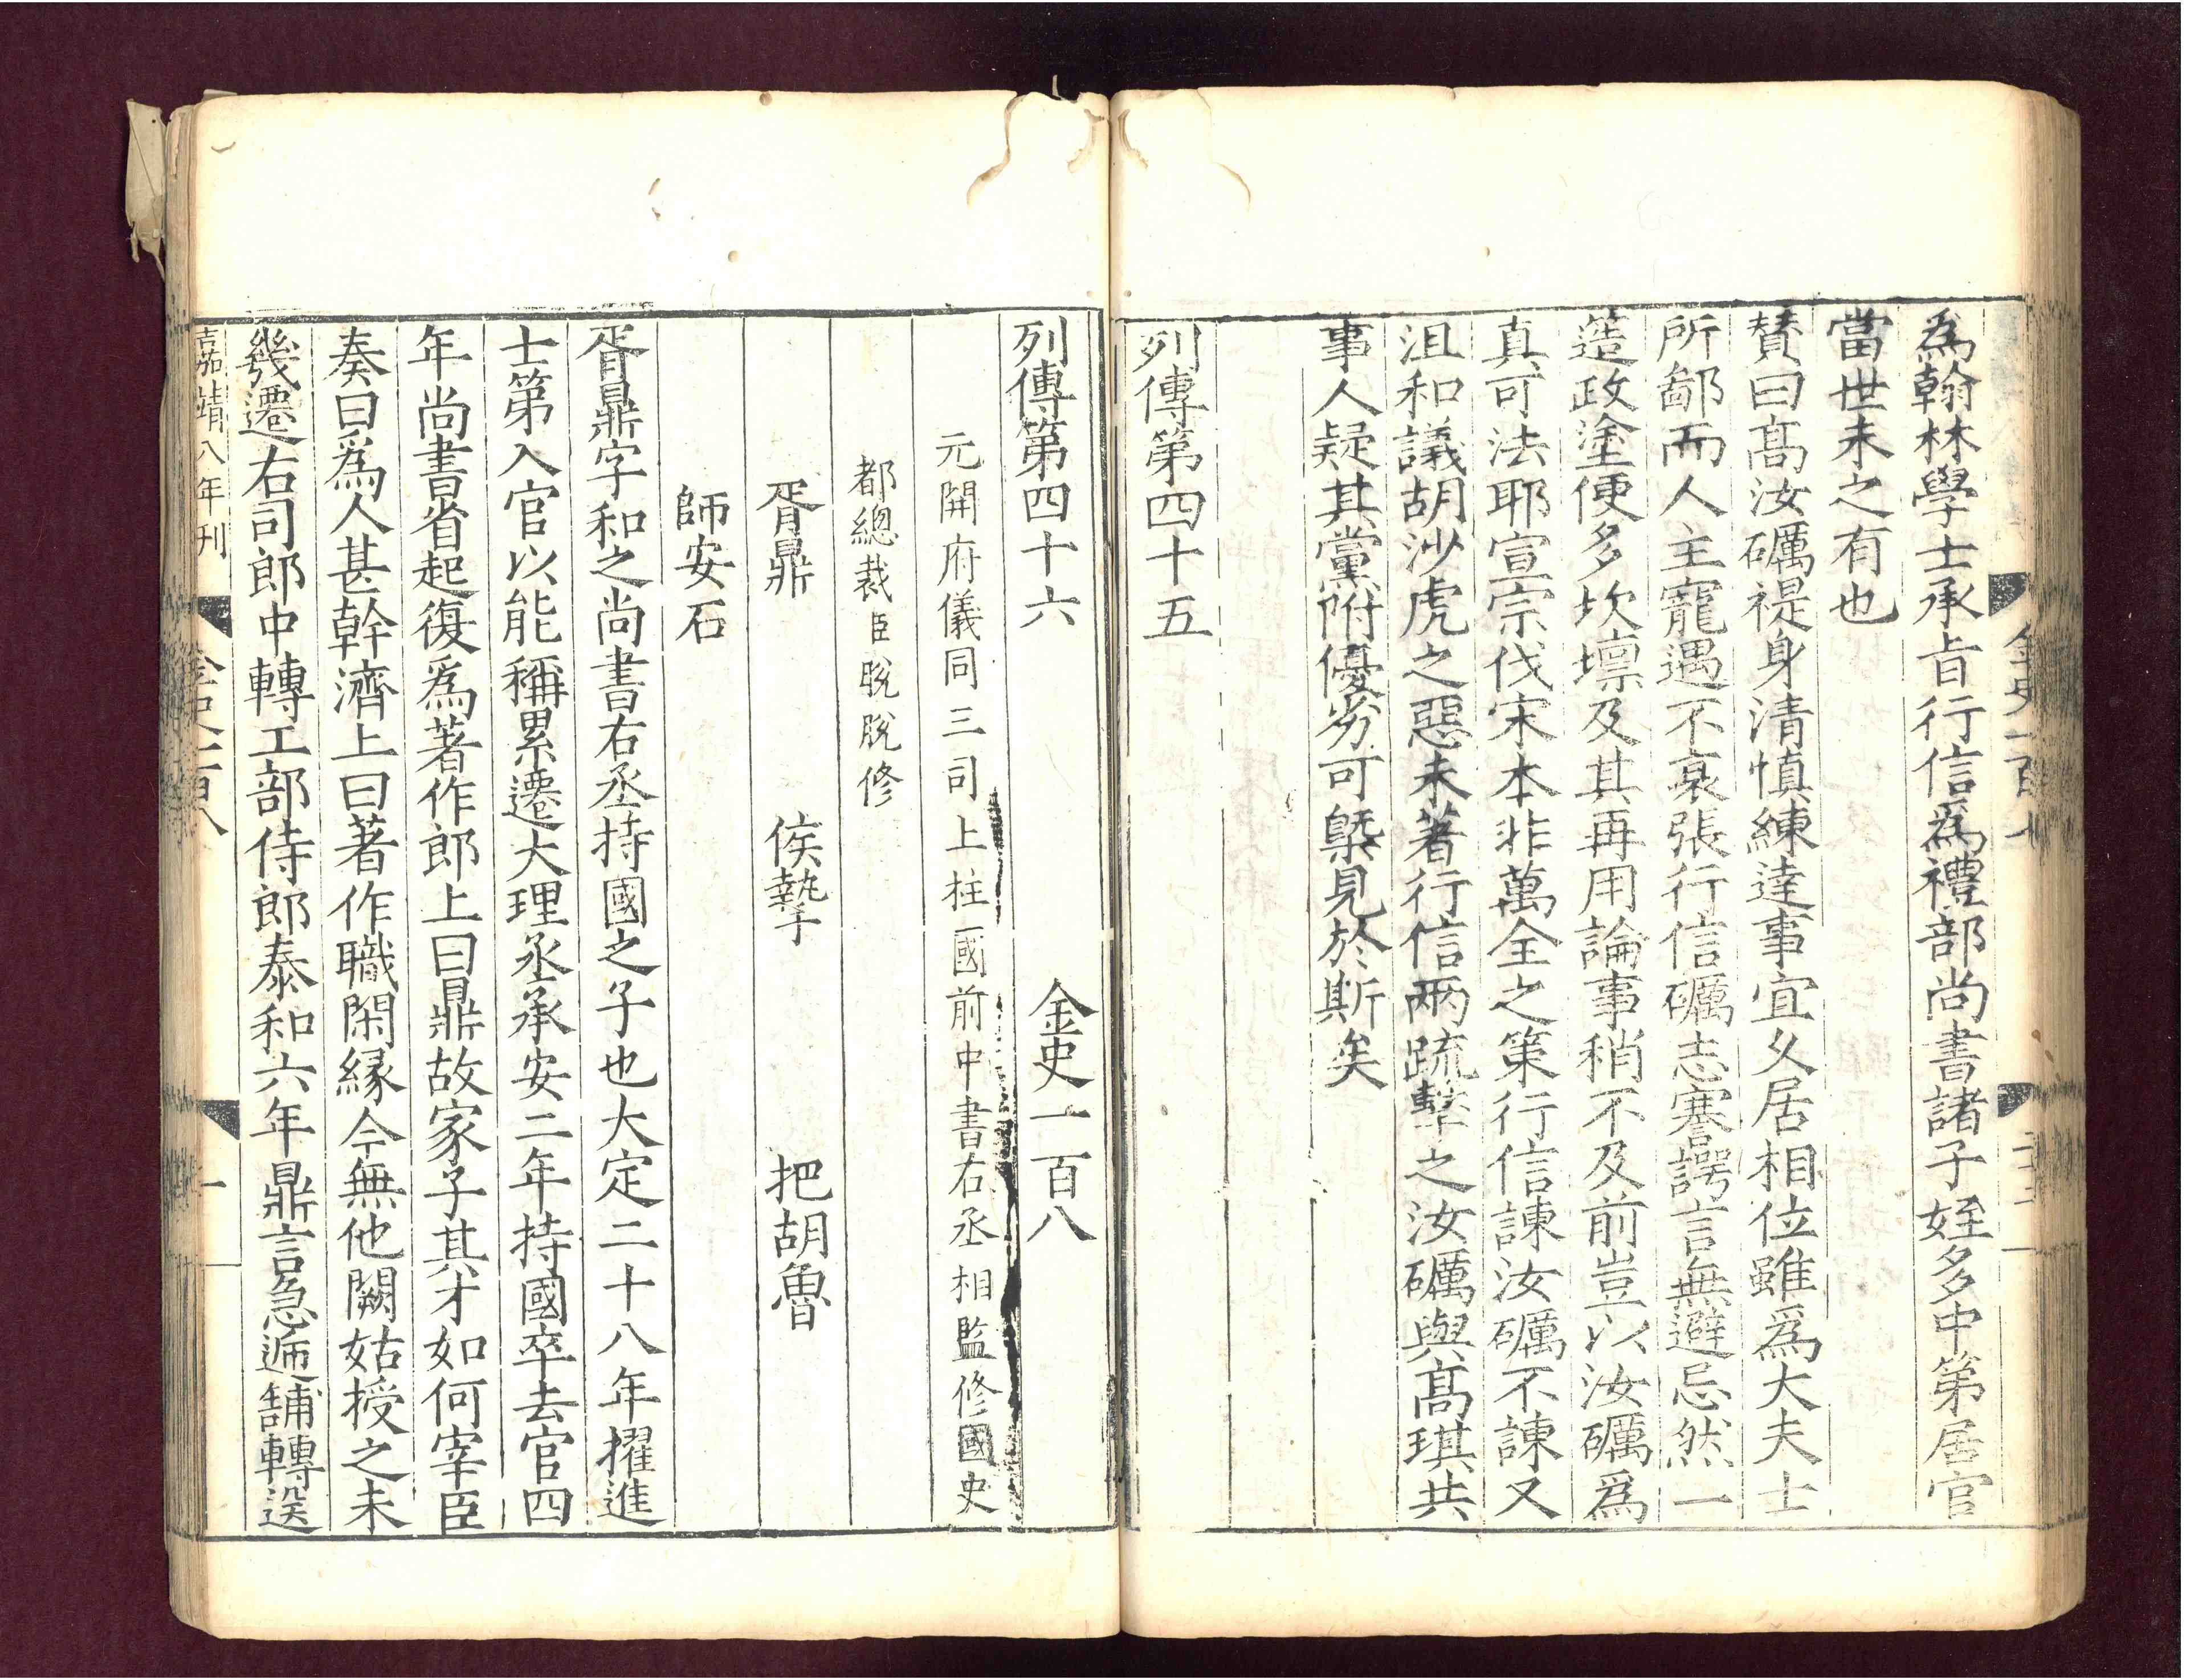 爲翰林學士承旨行信爲禮部尚書諸子姪多中第居官
當世未之有也
賛曰髙汝礪禔身清慎練達事宜乆居相位雖爲大夫士
所鄙而人主寵遇不衰張行信礪志謇諤言無避忌然一
簉政塗便多坎壈及其再用論事稍不及前豈以汝礪爲
真可法耶宣宗伐宋本非萬全之策行信諫汝礪不諫又
沮和議胡沙虎之惡未著行信兩疏擊之汝礪與髙琪共
事人疑其黨附優劣可槩見於斯矣
列傳第四十五
列傳第四十六 金史一百八
元開府儀同三司上柱國前中書右丞相監修國史
都總裁臣脫脫修
胥鼎 侯摯 把胡魯
師安石
胥鼎字和之尚書右丞持國之子也大定二十八年擢進
士第入官以能稱累遷大理丞承安二年持國卒去官四
年尚書省起復爲著作郎上曰鼎故家子其才如何宰臣
奏曰爲人甚幹濟上曰著作職閑緣今無他闕姑授之未
幾遷右司郎中轉工部侍郎泰和六年鼎言急遞舖轉送
嘉靖八年刊
金史一百八
一